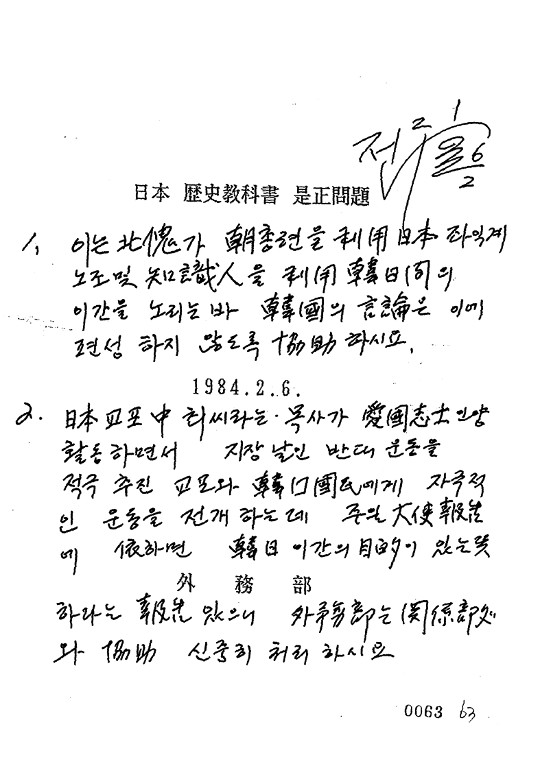 전두환
2/6
日本 歷史敎科書 是正問題
1, 이는 北傀가 朝총련을 利用 日本 좌익계
노조및 知識人을 利用 韓日间의
이간을 노리는바 韓國의 言論은 이에
편성 하지 않도록 協助 하시요.
1984.2.6.
2. 日本 교포中 최씨라는 목사가 愛國志士인양
활동하면서 지장날인 반대 운동을
적극 추진 교포와 韓国國民에게 자극적
인 운동을 전개 하는데 주일 大使 報告
에 依하면 韓日 이간의 目的이 있는듯
外 務 部
하라는 報告 있으니 外務部는 関係部処
와 協助 신중히 처리 하시요
0063 63